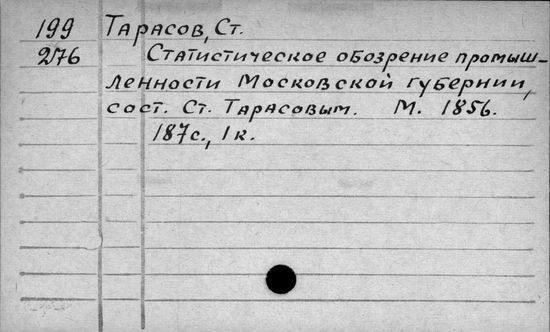 199 Тарасов, Ст.
276 Статистическое обозрение промыш-
ленности Московской губернии,
сост. Ст. Тарасовым. М. 1856.
187с., 1к.